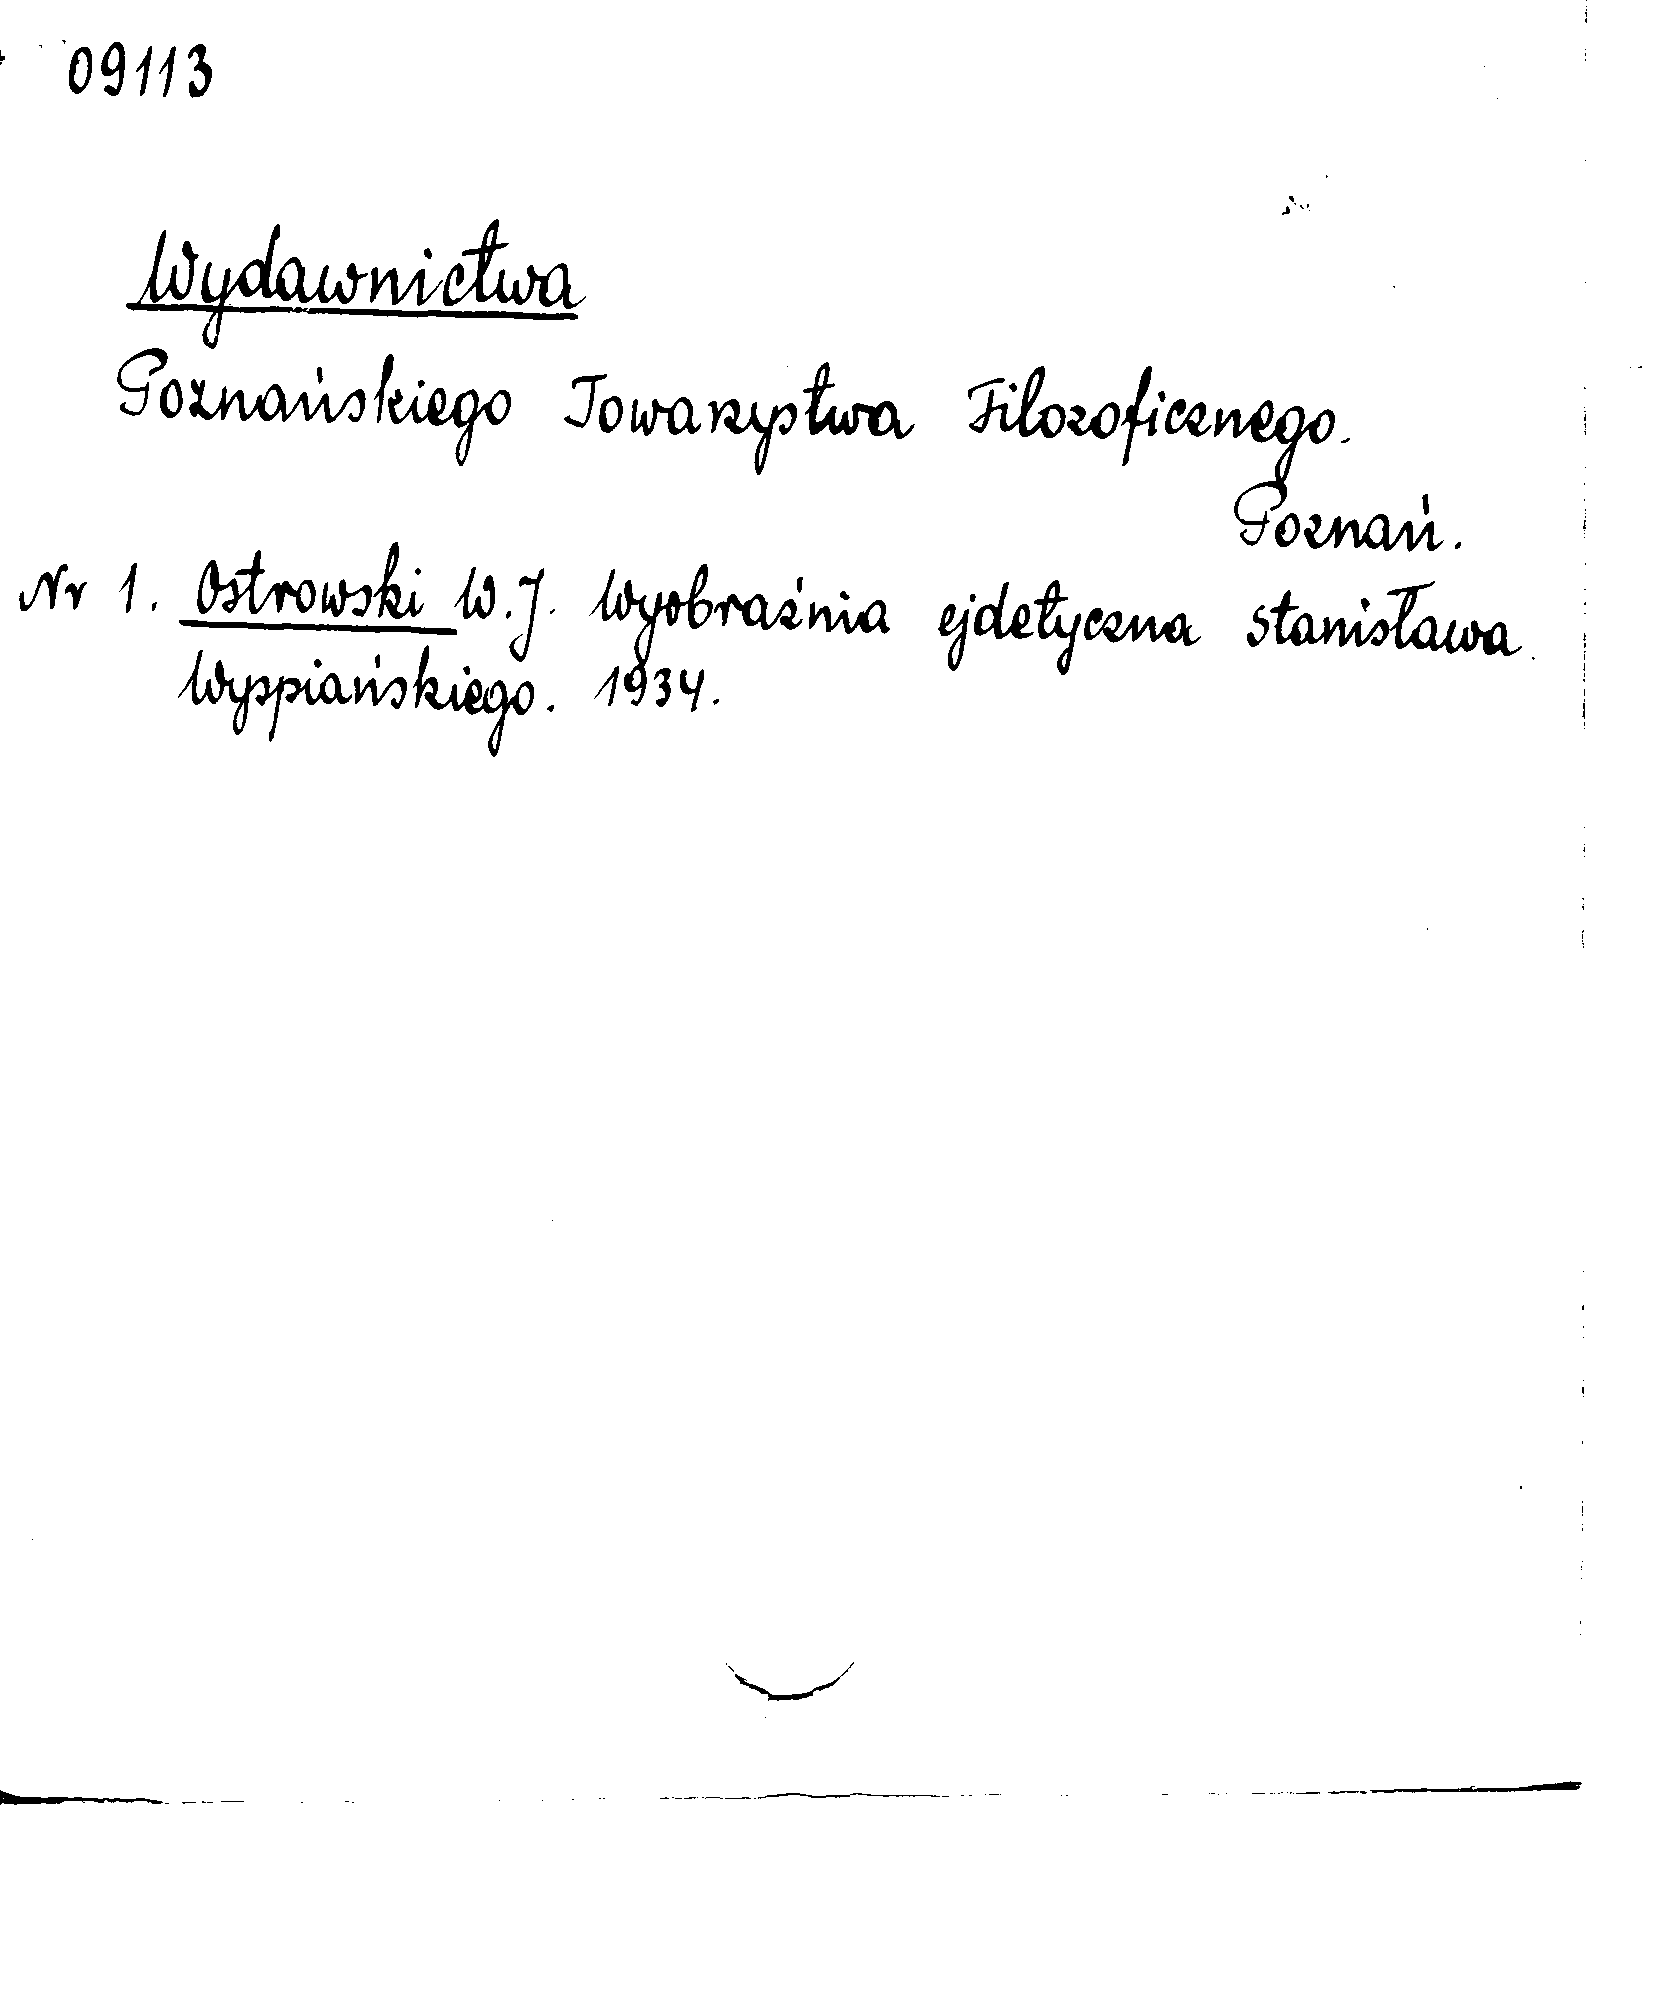 09113
Wydawnictwa
Poznańskiego Towarzystwa Filozoficznego.
Poznań.
Nr 1. Ostrowski W.J. Wyobraźnia ejdetyczna Stanisława
Wyspiańskiego. 1934.